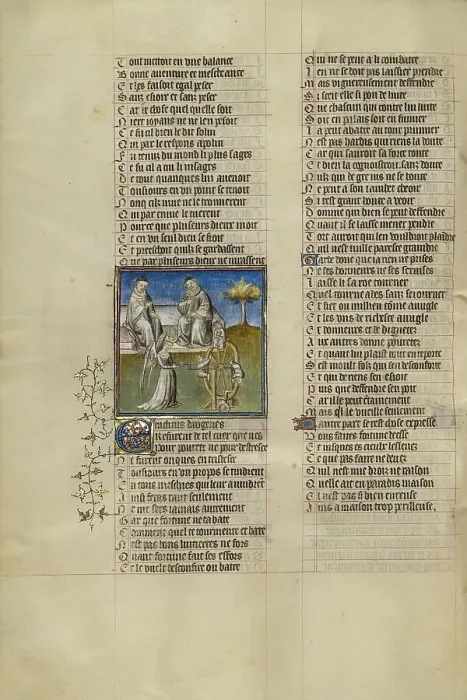 Tout mettoit en vne balance
Bonne auenture et mescheance
Et les faisoit egal peser
Sanz esioir et sanz peser
Car de chose quelle soit
Niert ioyans ne ne len pesoit
Ce fu cil bien le dit solin
Qui par le respons apolin
Fu tenuz du mond li plus sages
Ce fu cil a cui li visages
De tout quanques li auenoit
Tousiours en vn point se tenoit
Nonq cilz mue ne le trouuerent
Qui par enuie le tuerent
Pource que plusieurs dieux nioit
Et en vn seul dieu se fioit
Et preschoit quilz se gardassent
Que par plusieurs dieux ne iurassent
Eraclitus diogenes
Refurent de tel cuer que nes
Pour pourete ne pour destresce
Ne furent onques en tristesce
Tousiours en vn propos se tindrent
En tous meschies qui leur auindrent
Ainsi feras tant seulement
Ne me sers iamais autrement
Gar que fortune ne tabate
Comment quel te tourmente et bate
Nest pas bons luiteres ne fors
Quant fortune fait ses effors
Et le vuelt desconfire ou batre
Qui ne se peut a li combatre
Len ne se doit pas laissier prendre
Mais viguereusement deffendre
Si scet elle si pou de luite
Que chascun qui contre lui luite
Soit en palais soit en fumier
La peut abatre au tour premier
Nest pas hardis qui riens la doute
Car qui sauroit sa force toute
Et bien la cognoistroit sanz doute
Nulz qui de gre ius ne se boute
Ne peut a son iambet cheoir
Si rest grant honte a veoir
Domme qui bien se peut deffendre
Quant il se laisse mener pendre
Tort auroit qui len vouldroit plaindre
Quil nest nulle paresce graindre
Garde donc que ia riens ne prises
Ne ses honneurs ne ses seruises
Laisse li sa roe tourner
Quel tourne ades sanz seiourner
Et siet ou milieu come auugle
Les vns de richesce auugle
Et donneurs et de dignetez
Aux autres donne pouretez
Et quant lui plaist tout enreporte
Sest moult folz qui sen desconforte
Et qui de riens sen esioie
Puis que deffendre sen peut
Car elle peut certainement
Mais quil le vueille seulement
Dautre part si est chose expresse
Vous faites fortune deesse
Et iusques es cieulx leslieuez
Ce que pas faire ne deuez
Quil nest mie droiz ne raison
Quelle ait en paradis maison
El nest pas si bien eureuse
Ains a maison trop perilleuse.